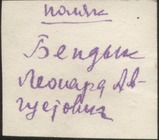 поляк
Бендык
Леонард Ав-
густович